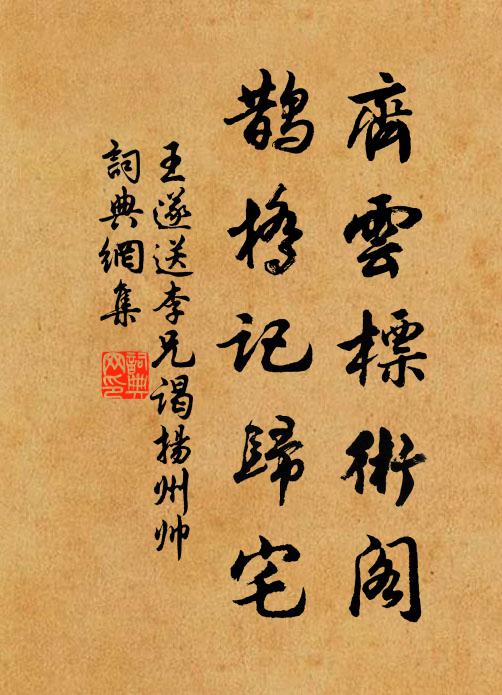 齊雲標術閣
鵲橋記歸宅
王遂送李兄謁揚州帅
詞典網集
詞典网印